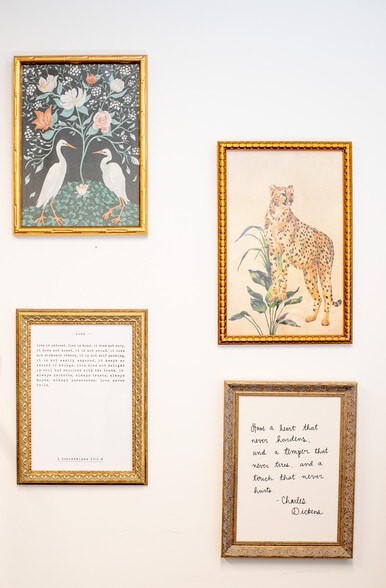 - LOVE -
Love is patient, love is kind. It does not envy,
it does not boast, it is not proud. It does
not dishonor others, it is not self-seeking,
it is not easily angered, it keeps no
record of wrongs. Love does not delight
in evil but rejoices with the truth. It
always protects, always trusts, always
hopes, always perseveres. Love never
fails.
1 CORINTHIANS
Have a heart that
never hardens,
and a temper that
never tires, and a
touch that never
hurts.
- Charles
Dickens